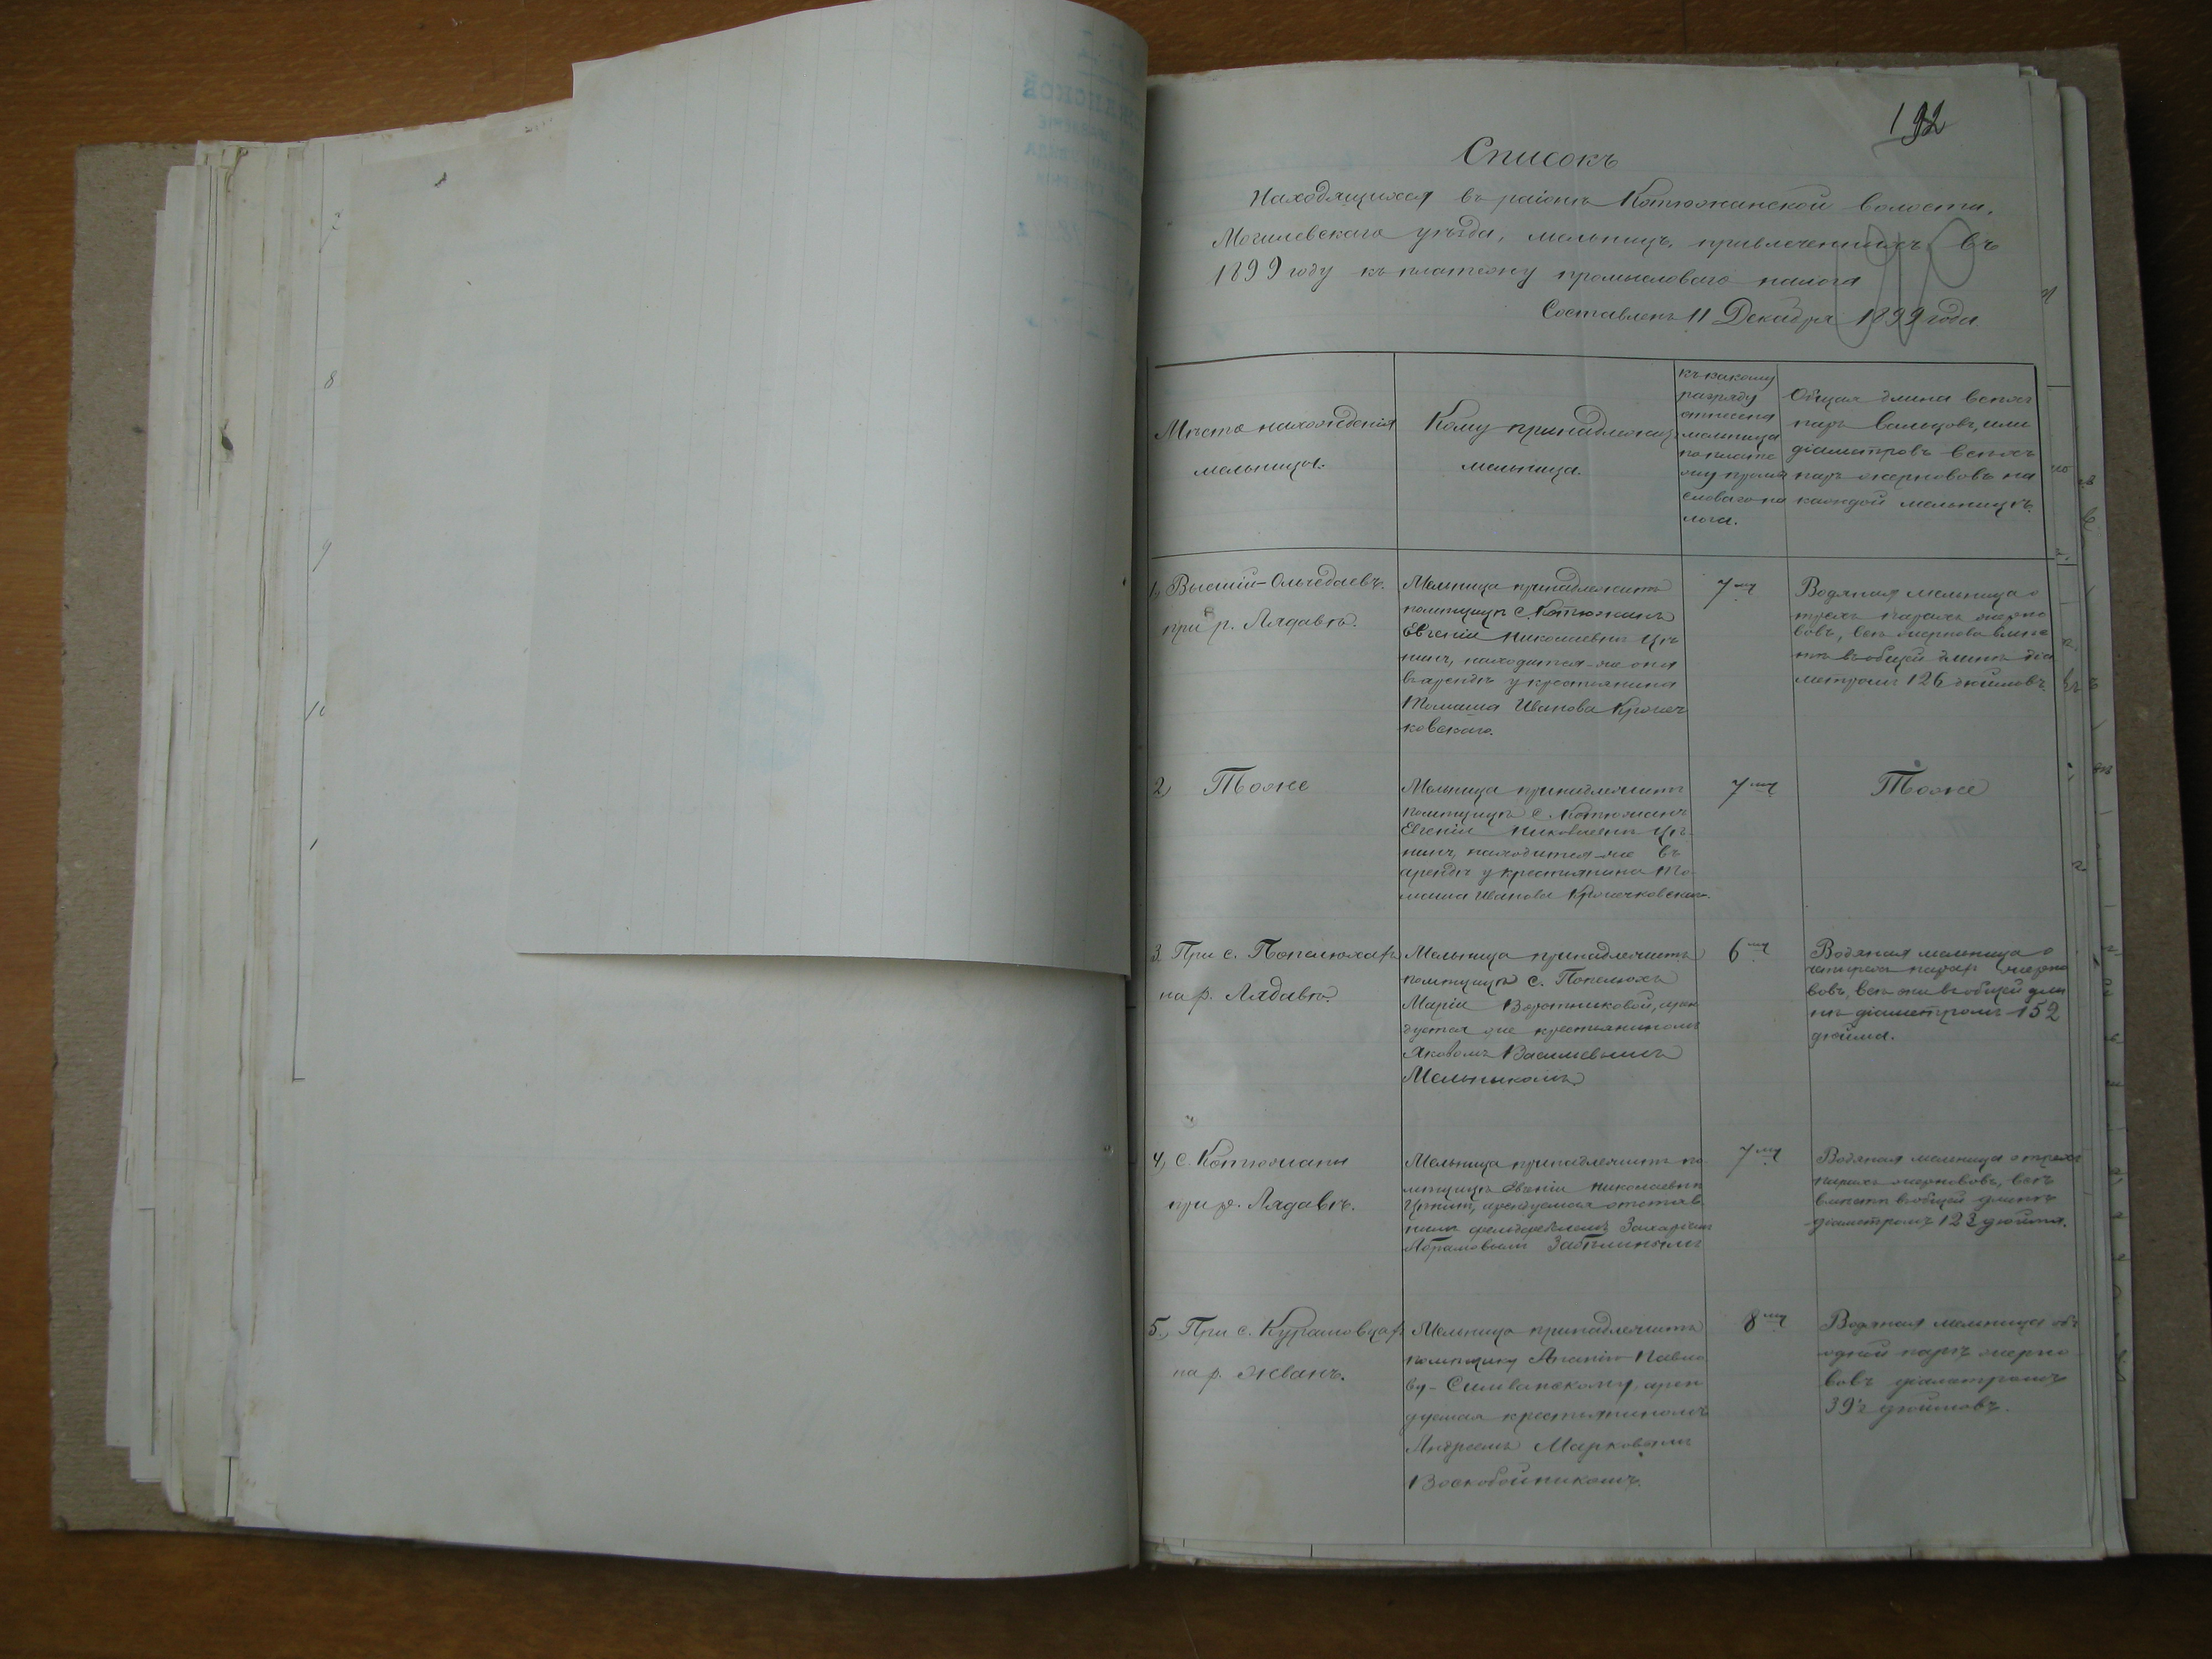 192
Списокъ
Находящихся въ районѣ Котюжанской волости,
Могилевскаго уѣзда, мельницъ, привлеченныхъ въ
1899 году къ платежу промысловаго налога
Составленъ 11 Декабря 1899 года
Мѣсто нахожденія
мельницы.
Кому принадлежитъ
мельница.
къ какому
разряду
отнесена
мельница
по плате
жу промы
словаго на
лога.
Общая длина всѣхъ
паръ вальцовъ, или
діаметровъ всѣхъ
паръ жернововъ на
каждой мельницѣ.
1, Высшій-Ольчедаевъ.
при р. Лядавѣ.
Мельница принадлежитъ
помѣщицѣ с. Котюжанъ
Евгеніи Николаевнѣ
находится-же она
въ арендѣ у крестьянина
Томаша Иванова
7му
Водяная мельница о
трехъ парахъ жерно
вовъ, всѣ жернова вмѣс
тѣ въ общей длинѣ діа
метромъ 126 дюймовъ.
2, Тоже
Мельница принадлежитъ
помѣщицѣ с. Котюжанъ
Евгеніи Николаевнѣ
находится-же въ
арендѣ у крестьянина То
маша Иванова
7му
Тоже
3. При с. Попелюхахъ
на р. Лядавѣ.
Мельница принадлежитъ
помѣщицѣ с. Попелюхъ
Маріи Воротниковой, арен
дуется же крестьяниномъ
Яковомъ Васильевымъ
Мельникомъ
6му
Водяная мельница о
четырехъ парахъ жерно
вовъ, всѣ они въ общей дли
нѣ діаметромъ 152
дюйма.
4, с. Котюжаны
при р. Лядавѣ.
Мельница принадлежитъ по
мѣщицѣ Евгеніи Николаевнѣ
арендуемая отстав
нымъ фельдфебелемъ Захаріемъ
Абрамовымъ
7му
Водяная мельница о трехъ
парахъ жернововъ, всѣ
вмѣстѣ въ общей длинѣ
діаметромъ 123 дюйма.
5., При с. Курашовцахъ
на р. Жванъ.
Мельница принадлежитъ
помѣщику Ананію Павло
ву-Сильванскому, арен
дуемая крестьяниномъ
Андреемъ Марковымъ
Воскобойникомъ.
8му
Водяная мельница объ
одной парѣ жерно-
вовъ діаметромъ
дюймовъ.
8
9
10